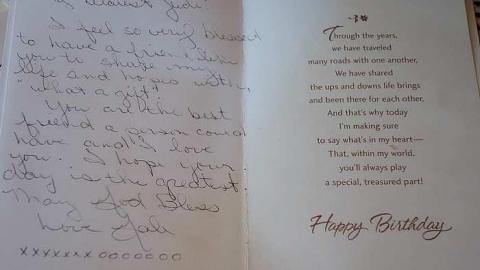 my dearest Judi:
I feel so very blessed
to have a friend like
you to share my
life and hopes with,
"what a gift"!
You are the best
friend a person could
have and I love
you. I hope your
day is the greatest.
May God Bless
Love Gali
xxxxxxx ooooooo
Through the years,
we have traveled
many roads with one another,
We have shared
the ups and downs life brings
and been there for each other,
And that's why today
I'm making sure
to say what's in my heart—
That, within my world,
you'll always play
a special, treasured part!
Happy Birthday